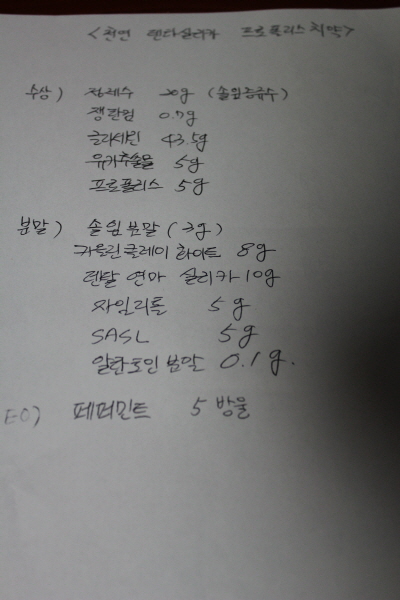 <천연 덴타실리카 프로폴리스 치약>
수상) 정제수 20g (솔잎증류수)
잰탄검 0.7g
글리세린 43.5g
유카추출물 5g
프로폴리스 5g
분말) 솔잎분말 (3g)
카올린클레이 화이트 8g
덴탈 연마 실리카 10g
자일리톨 5g
SASL 5g
알란토인 분말 0.1g.
EO) 페퍼민트 5 방울